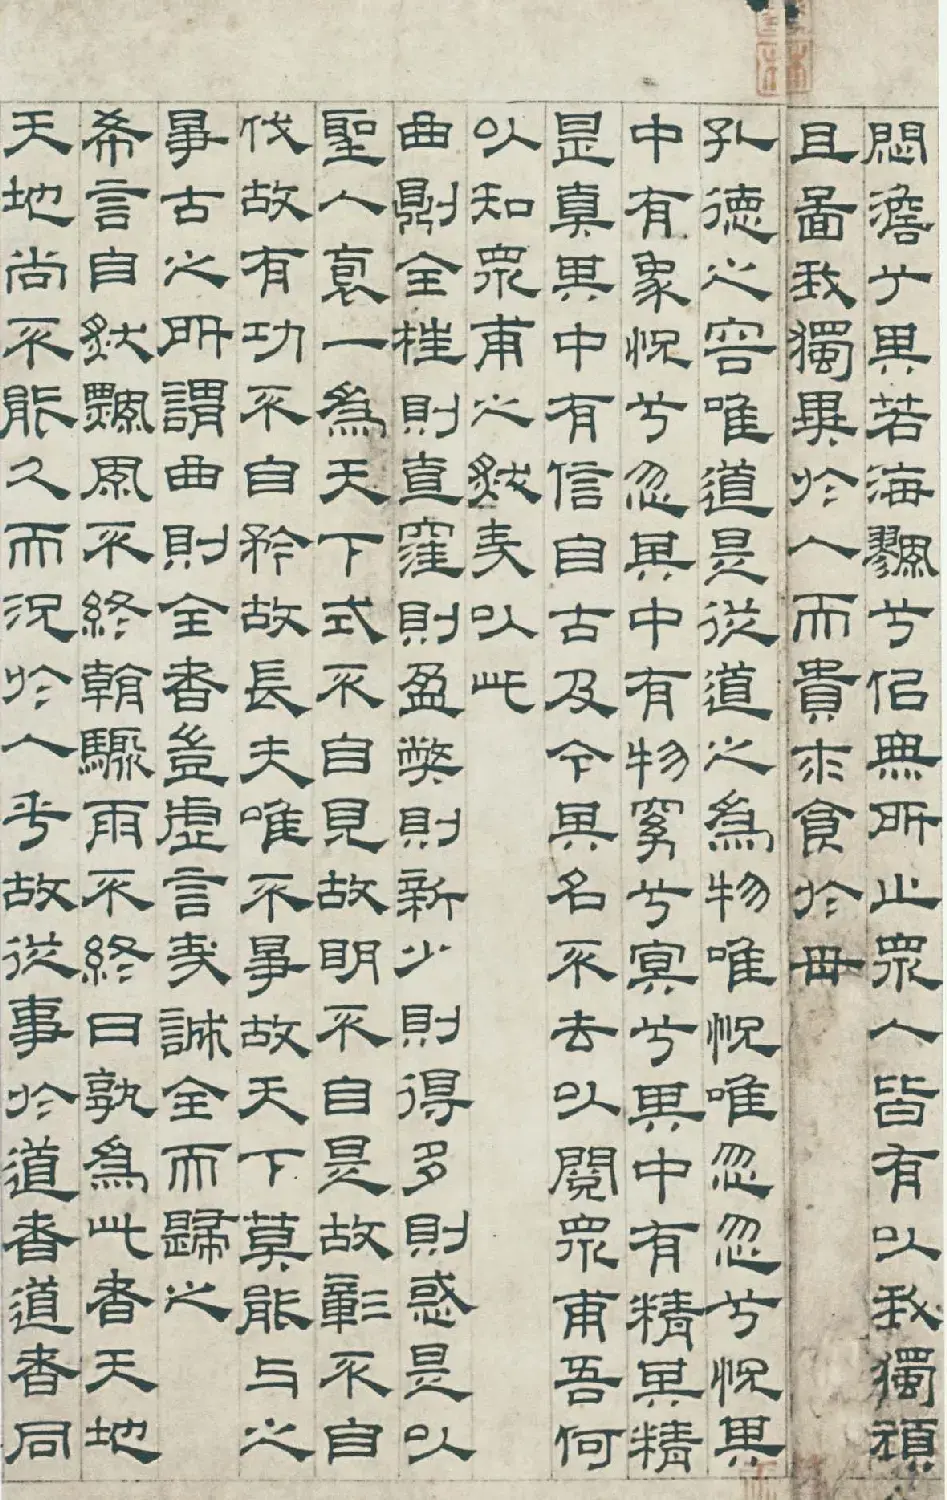 悶澹兮其若海飂兮佀無所止眾人皆有以我獨頑
且啚我獨異於人而貴求食於母
孔德之容唯道是從道之為物唯怳唯忽忽兮怳其
中有象怳兮忽其中有物窈兮冥兮其中有精其精
昰真其中有信自古及今其名不去以閱眾甫吾何
以知眾甫之然哉以此
曲則全枉則直窪則盈弊則新少則得多則惑是以
聖人袌一為天下式不自見故明不自是故彰不自
伐故有功不自矜故長夫唯不爭故天下莫能与之
爭古之所謂曲則全者豈虛言哉誠全而歸之
希言自然飄風不終朝驟雨不終日孰為此者天地
天地尚不能久而況於人乎故從事於道者道者同